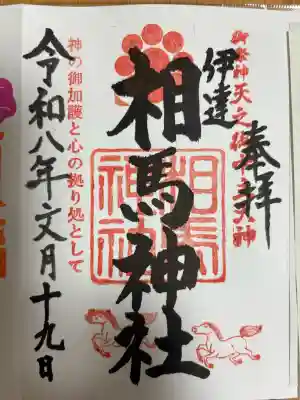 奉拝
御祭神天之御中主大神
伊達
相馬神社
相馬神社
神の御加護と心の拠り処として
令和八年文月十九日